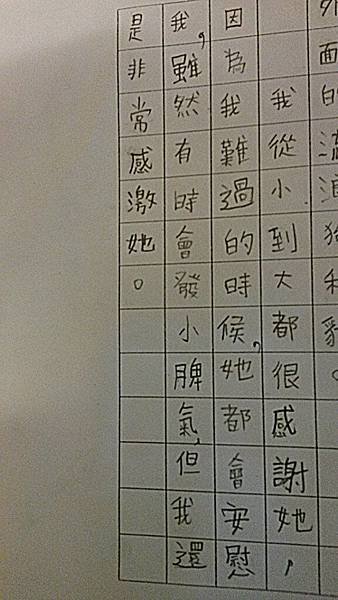 外面的流浪狗和貓。
我從小到大都很感謝她，
因為我難過的時候，她都會安慰
我，雖然有時會發小脾氣，但我還
是非常感激她。